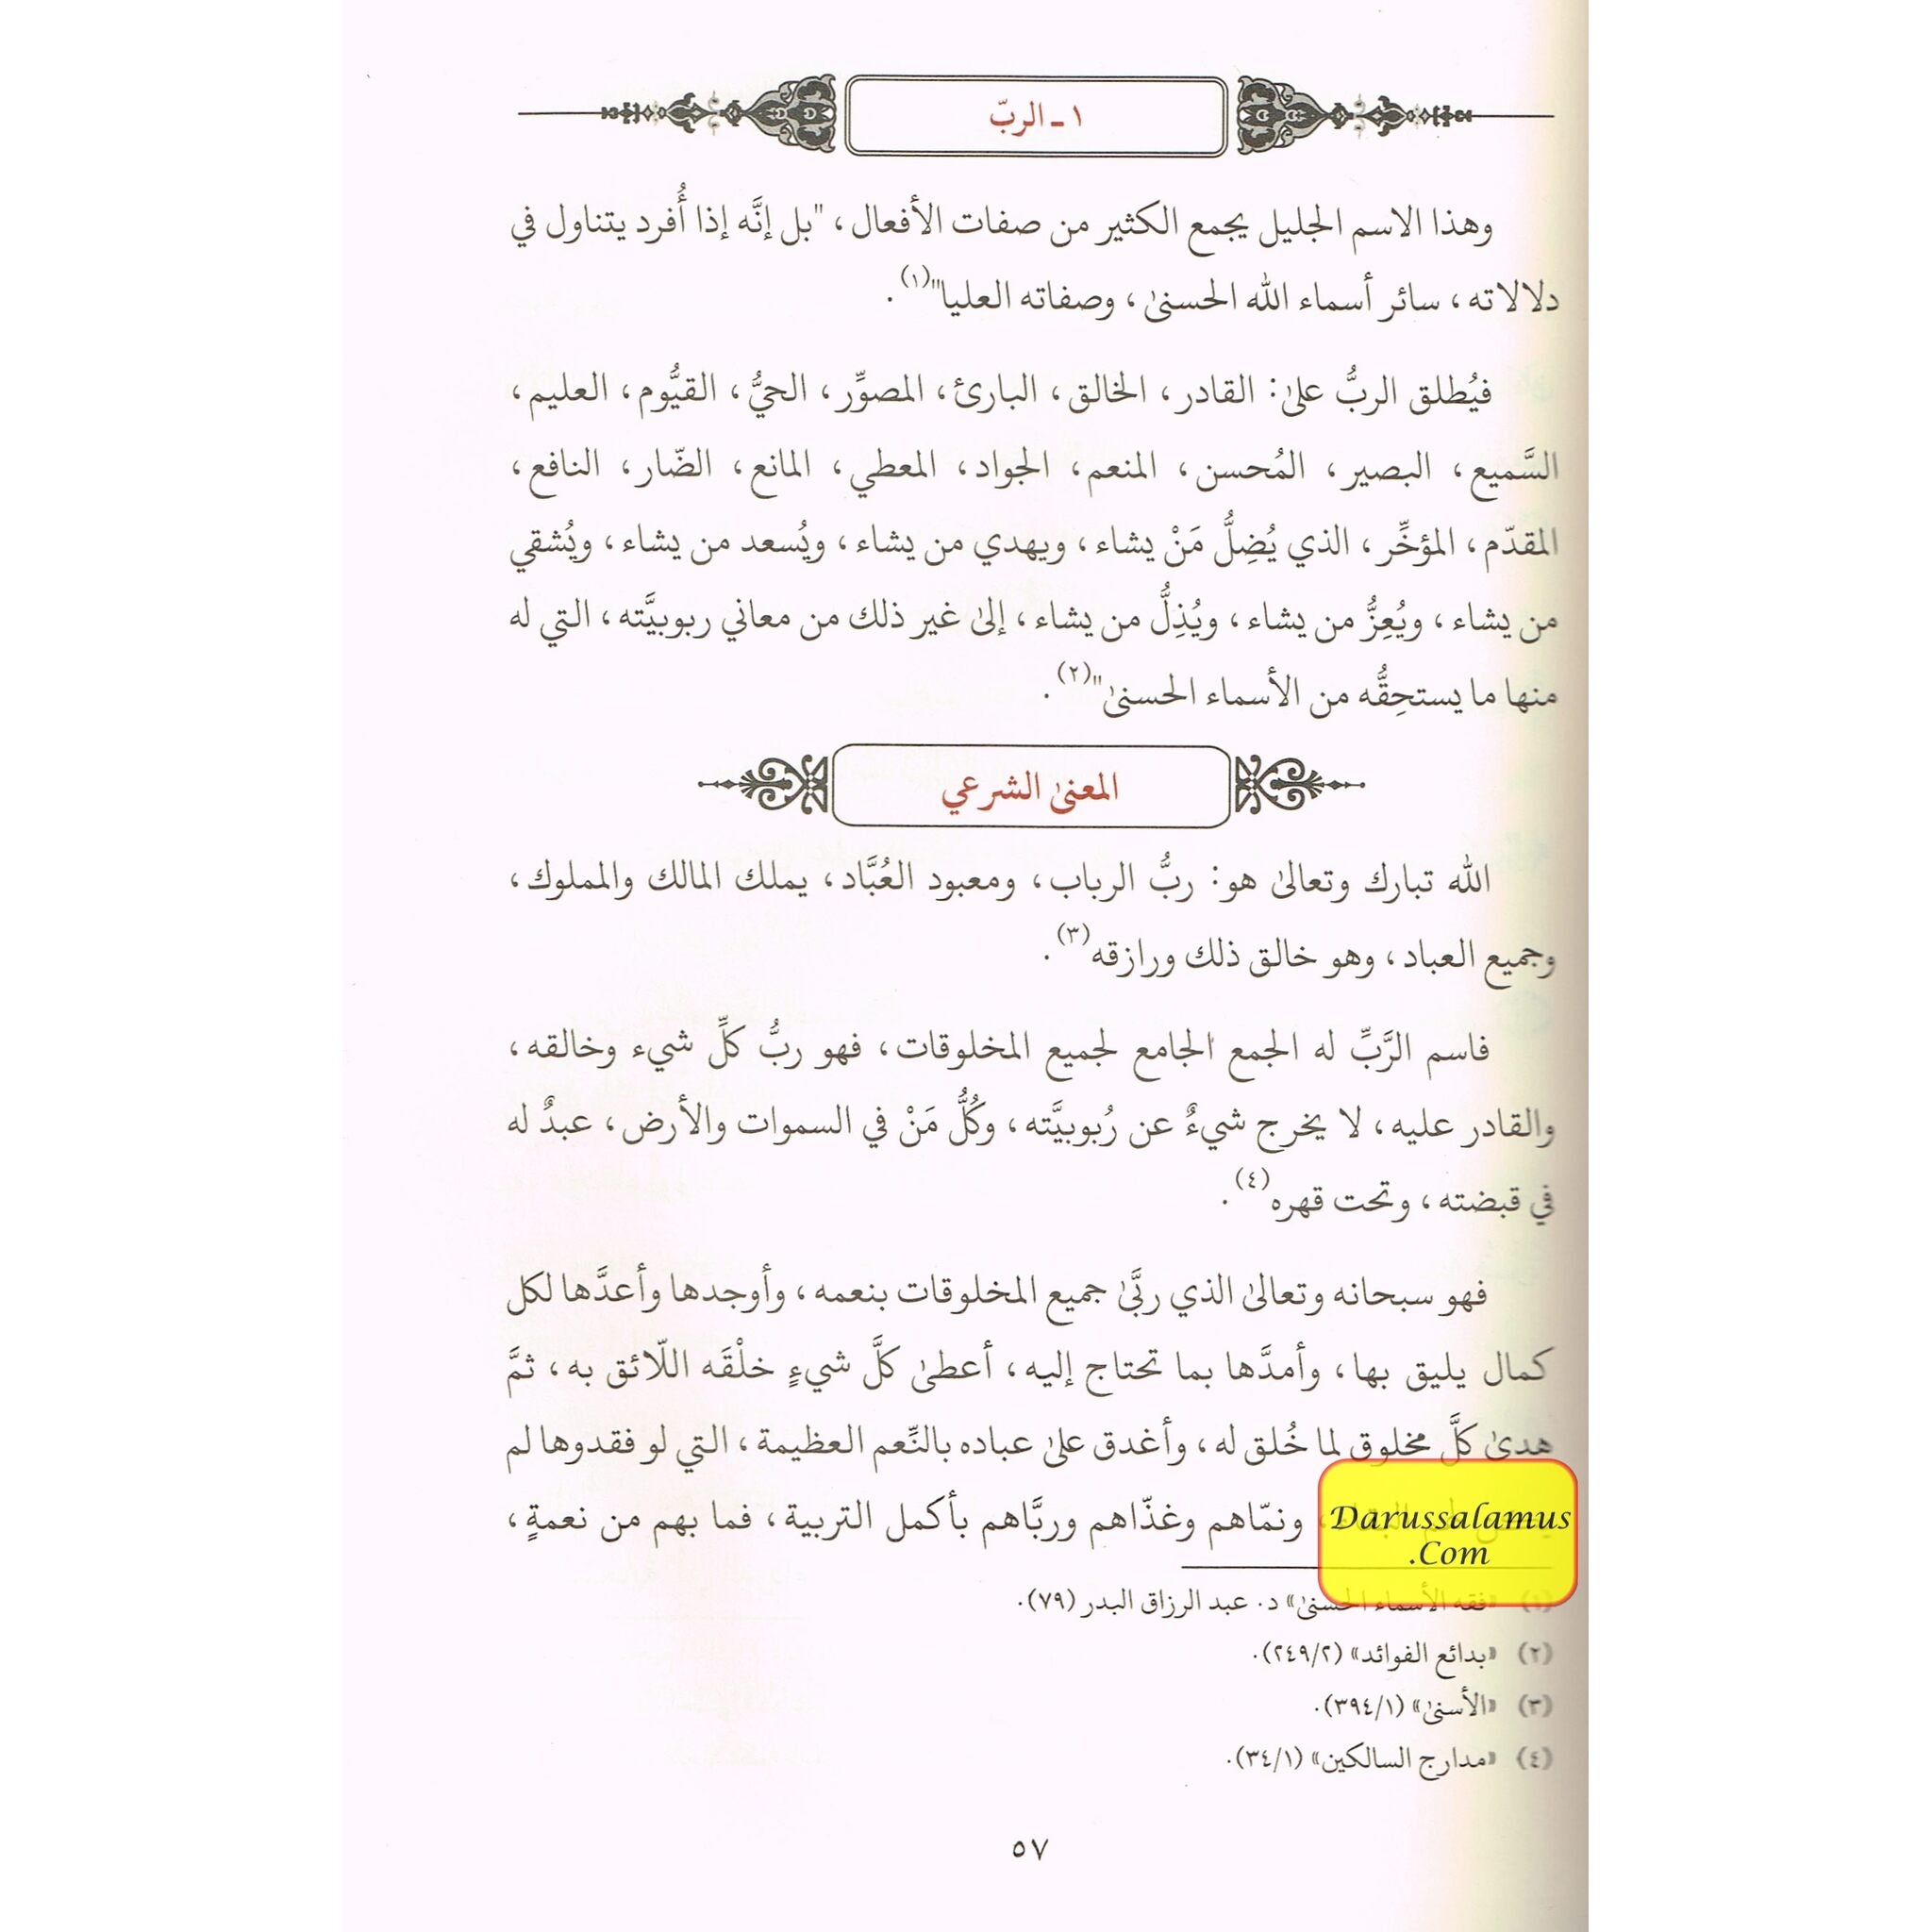 ١ ـ الربّ
وهذا الاسم الجليل يجمع الكثير من صفات الأفعال، "بل إنَّه إذا أُفرد يتناول في
دلالاته، سائر أسماء الله الحسنىٰ، وصفاته العليا"(١).
فيُطلق الربُّ علىٰ: القادر، الخالق، البارئ، المصوِّر، الحيُّ، القيُّوم، العليم،
السَّميع، البصير، المُحسن، المنعم، الجواد، المعطي، المانع، الضّار، النافع،
المقدّم، المؤخِّر، الذي يُضِلُّ مَنْ يشاء، ويهدي من يشاء، ويُسعد من يشاء، ويُشقي
من يشاء، ويُعِزُّ من يشاء، ويُذِلُّ من يشاء، إلىٰ غير ذلك من معاني ربوبيَّته، التي له
منها ما يستحِقُّه من الأسماء الحسنىٰ"(٢).
المعنىٰ الشرعي
الله تبارك وتعالىٰ هو: ربُّ الرباب، ومعبود العُبَّاد، يملك المالك والمملوك،
وجميع العباد، وهو خالق ذلك ورازقه(٣).
فاسم الرَّبِّ له الجمع الجامع لجميع المخلوقات، فهو ربُّ كلِّ شيء وخالقه،
والقادر عليه، لا يخرج شيءٌ عن رُبوبيَّته، وكُلُّ مَنْ في السموات والأرض، عبدٌ له
في قبضته، وتحت قهره(٤).
فهو سبحانه وتعالىٰ الذي ربَّىٰ جميع المخلوقات بنعمه، وأوجدها وأعدَّها لكل
كمال يليق بها، وأمدَّها بما تحتاج إليه، أعطىٰ كلَّ شيءٍ خلْقَه اللّائق به، ثمَّ
هدىٰ كلَّ مخلوق لما خُلق له، وأغدق علىٰ عباده بالنِّعم العظيمة، التي لو فقدوها لم
ونمّاهم وغذّاهم وربَّاهم بأكمل التربية، فما بهم من نعمةٍ،
Darussalamus
.Com
(١) «فقه الأسماء الحسنىٰ» د. عبد الرزاق البدر (٧٩).
(٢) «بدائع الفوائد» (٢٤٩/٢).
(٣) «الأسنىٰ» (٣٩٤/١).
(٤) «مدارج السالكين» (٣٤/١).
٥٧